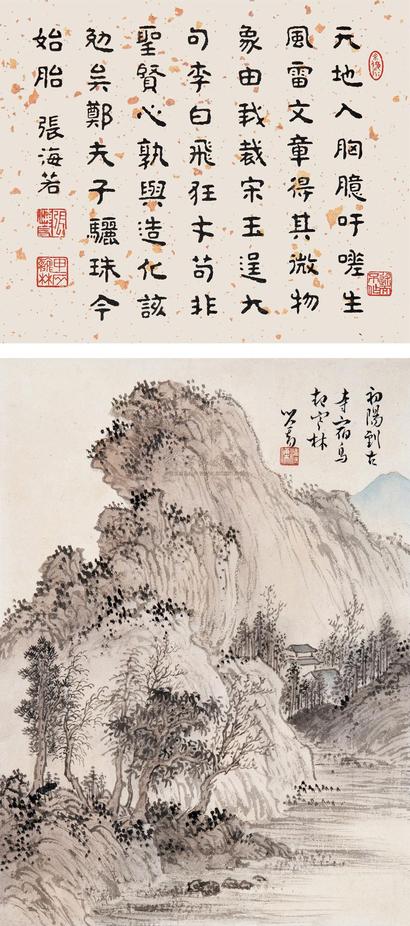 天地入胸臆吁嗟生
風雷文章得其微物
象由我裁宋玉逞大
句李白飛狂才苟非
聖賢心孰與造化該
勉矣鄭夫子驪珠今
始胎 張海若
初陽到古
寺宿鳥
起寒林
心畬